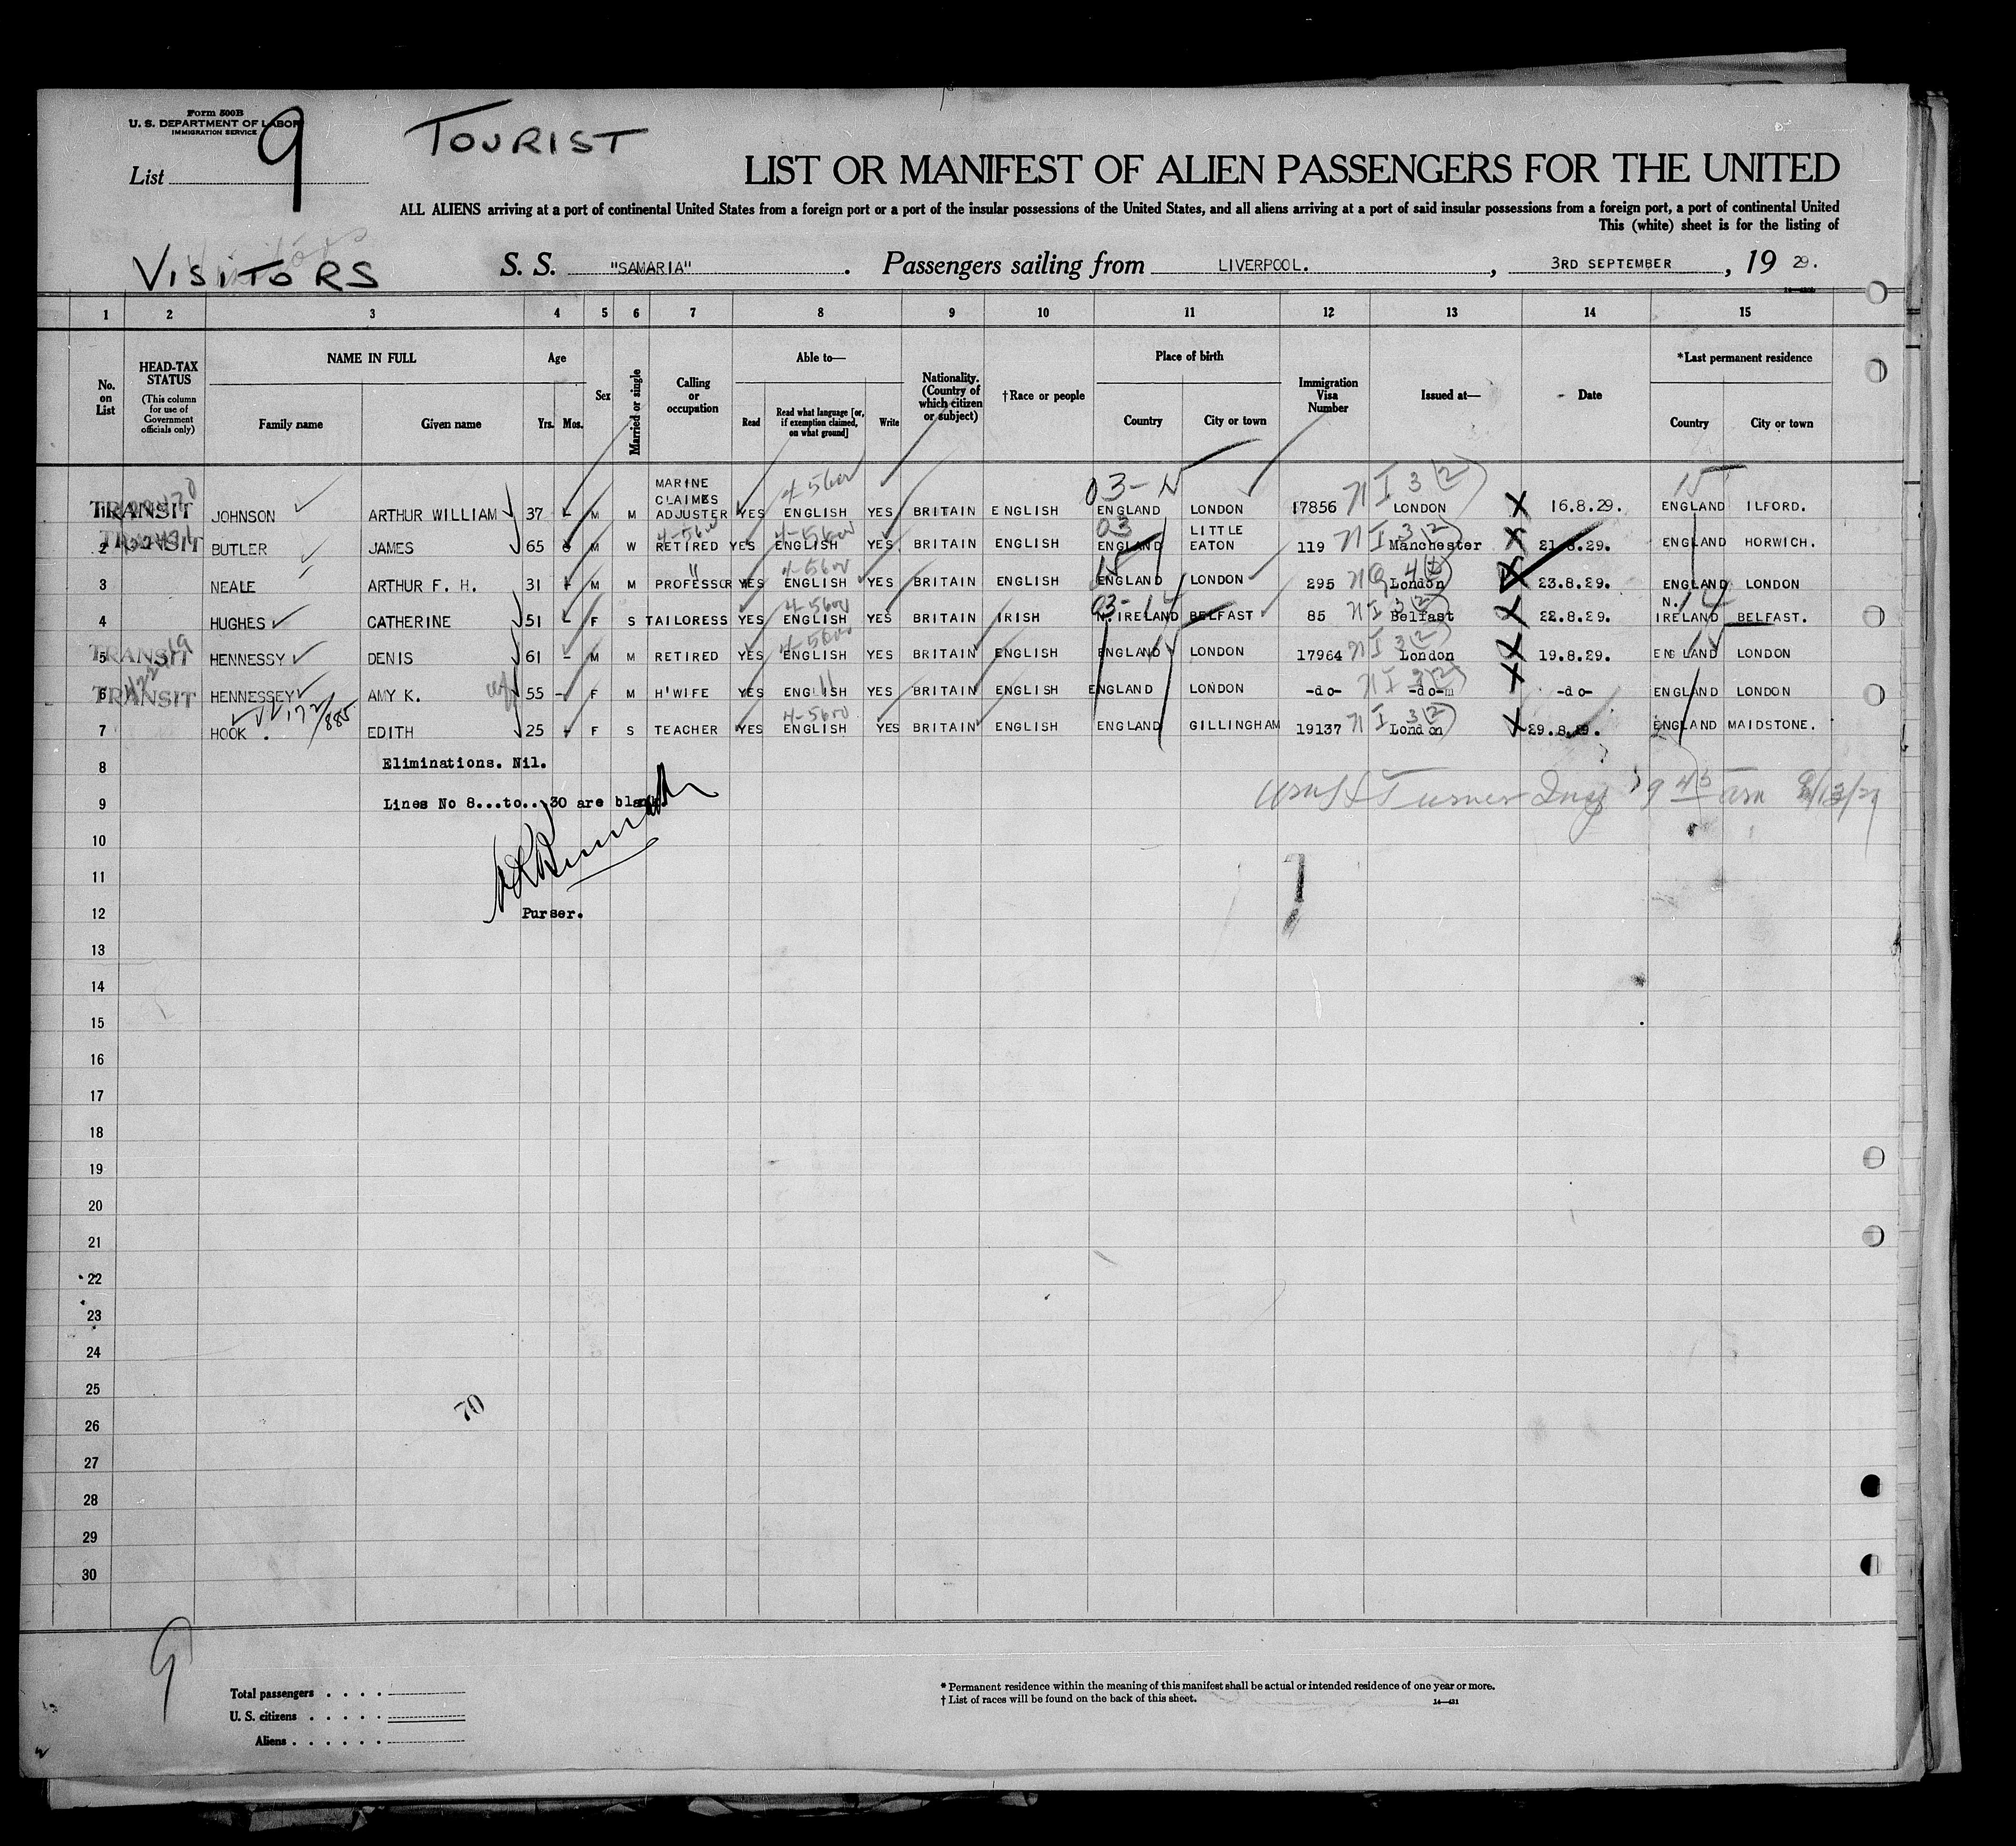 Form 500B
U. S. DEPARTMENT OF LABOR
IMMIGRATION SERVICE
List 9
TOURIST
LIST OR MANIFEST OF ALIEN PASSENGERS FOR THE UNITED
ALL ALIENS arriving at a port of continental United States from a foreign port or a port of the insular possessions of the United States, and all aliens arriving at a port of said insular possessions from a foreign port, a port of continental United
This (white) sheet is for the listing of
VISITORS
S. S. "SAMARIA". Passengers sailing from LIVERPOOL., 3RD SEPTEMBER, 19 29.
1 2 3 4 5 6 7 8 9 10 11 12 13 14 15
No. on List
HEAD-TAX STATUS
(This column for use of Government officials only)
NAME IN FULL
Family name Given name
Age
Yrs. Mos.
Sex
Married or single
Calling or occupation
Able to—
Read Read what language [or, if exemption claimed, on what ground] Write
Nationality. (Country of which citizen or subject)
†Race or people
Place of birth
Country City or town
Immigration Visa Number
Issued at—
Date
*Last permanent residence
Country City or town
TRANSIT JOHNSON ARTHUR WILLIAM 37 - M M MARINE CLAIMES ADJUSTER YES ENGLISH YES BRITAIN ENGLISH ENGLAND LONDON 17856 NI 3(2) LONDON X 16.8.29. ENGLAND ILFORD.
2 TRANSIT BUTLER JAMES 65 M W RETIRED YES ENGLISH YES BRITAIN ENGLISH ENGLAND LITTLE EATON 119 NI 3(2) Manchester X 21.8.29. ENGLAND HORWICH.
3 NEALE ARTHUR F. H. 31 M M PROFESSOR YES ENGLISH YES BRITAIN ENGLISH ENGLAND LONDON 295 London 23.8.29. ENGLAND LONDON
4 HUGHES CATHERINE 51 - F S TAILORESS YES ENGLISH YES BRITAIN IRISH N. IRELAND BELFAST 85 NI 3(2) Belfast X 22.8.29. N. IRELAND BELFAST.
5 TRANSIT HENNESSY DENIS 61 - M M RETIRED YES ENGLISH YES BRITAIN ENGLISH ENGLAND LONDON 17964 NI 3(2) London X 19.8.29. ENGLAND LONDON
6 TRANSIT HENNESSEY AMY K. 55 - F M H'WIFE YES ENGLISH YES BRITAIN ENGLISH ENGLAND LONDON -do- -do- X -do- ENGLAND LONDON
7 HOOK. EDITH 25 F S TEACHER YES ENGLISH YES BRITAIN ENGLISH ENGLAND GILLINGHAM 19137 NI 3(2) London X 29.8.29. ENGLAND MAIDSTONE.
8 Eliminations. Nil.
9 Lines No 8...to...30 are blank.
10
11
12 Purser.
13
14
15
16
17
18
19
20
21
22
23
24
25
70
26
27
28
29
30
9
Total passengers
U. S. citizens
Aliens
* Permanent residence within the meaning of this manifest shall be actual or intended residence of one year or more.
† List of races will be found on the back of this sheet.
14—421